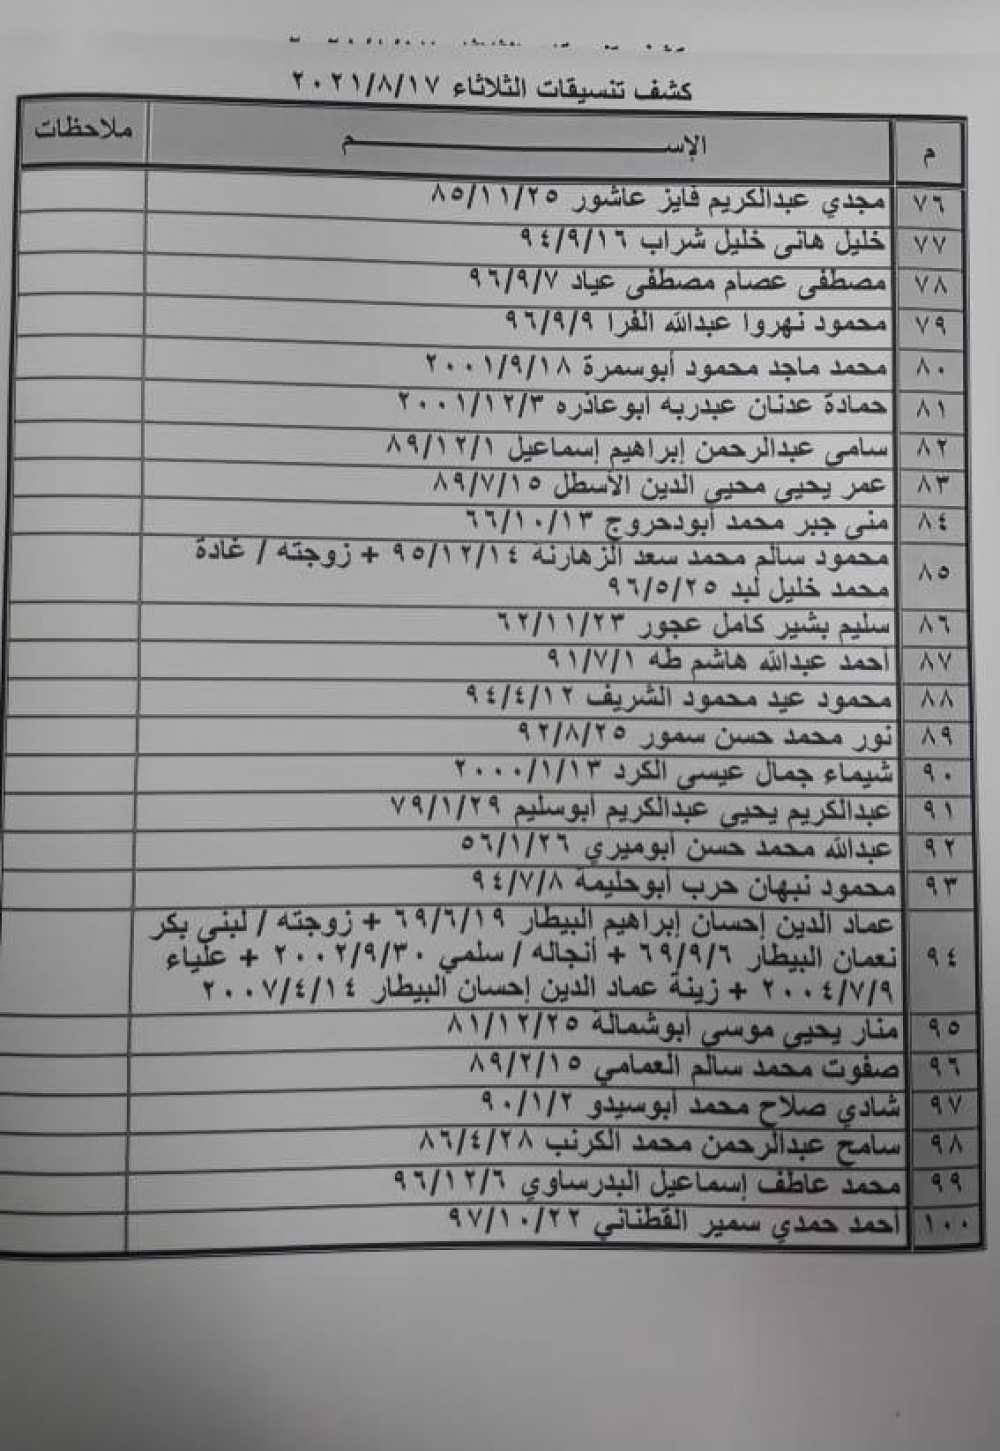 كشف تنسيقات الثلاثاء ٢٠٢١/٨/١٧
م الإســـــــــــم ملاحظات
٧٦ مجدي عبدالكريم فايز عاشور ٨٥/١١/٢٥
٧٧ خليل هانى خليل شراب ٩٤/٩/١٦
٧٨ مصطفى عصام مصطفى عياد ٩٦/٩/٧
٧٩ محمود نهروا عبدالله الفرا ٩٦/٩/٩
٨٠ محمد ماجد محمود أبوسمرة ٢٠٠١/٩/١٨
٨١ حمادة عدنان عبدربه ابوعاذره ٢٠٠١/١٢/٣
٨٢ سامى عبدالرحمن إبراهيم إسماعيل ٨٩/١٢/١
٨٣ عمر يحيي محيي الدين الأسطل ٨٩/٧/١٥
٨٤ منى جبر محمد أبودحروج ٦٦/١٠/١٣
٨٥ محمود سالم محمد سعد الزهارنة ٩٥/١٢/١٤ + زوجته / غادة
محمد خليل لبد ٩٦/٥/٢٥
٨٦ سليم بشير كامل عجور ٦٢/١١/٢٣
٨٧ أحمد عبدالله هاشم طه ٩١/٧/١
٨٨ محمود عيد محمود الشريف ٩٤/٤/١٢
٨٩ نور محمد حسن سمور ٩٢/٨/٢٥
٩٠ شيماء جمال عيسي الكرد ٢٠٠٠/١/١٣
٩١ عبدالكريم يحيي عبدالكريم أبوسليم ٧٩/١/٢٩
٩٢ عبدالله محمد حسن أبوميري ٥٦/١/٢٦
٩٣ محمود نبهان حرب أبوحليمة ٩٤/٧/٨
٩٤ عماد الدين إحسان إبراهيم البيطار ٦٩/٦/١٩ + زوجته / لبنى بكر
نعمان البيطار ٦٩/٩/٦ + أنجاله / سلمي ٢٠٠٢/٩/٣٠ + علياء
٢٠٠٤/٧/٩ + زينة عماد الدين إحسان البيطار ٢٠٠٧/٤/١٤
٩٥ منار يحيي موسي أبوشمالة ٨١/١٢/٢٥
٩٦ صفوت محمد سالم العمامي ٨٩/٢/١٥
٩٧ شادي صلاح محمد أبوسيدو ٩٠/١/٢
٩٨ سامح عبدالرحمن محمد الكرنب ٨٦/٤/٢٨
٩٩ محمد عاطف إسماعيل البدرساوي ٩٦/١٢/٦
١٠٠ أحمد حمدي سمير القطناني ٩٧/١٠/٢٢